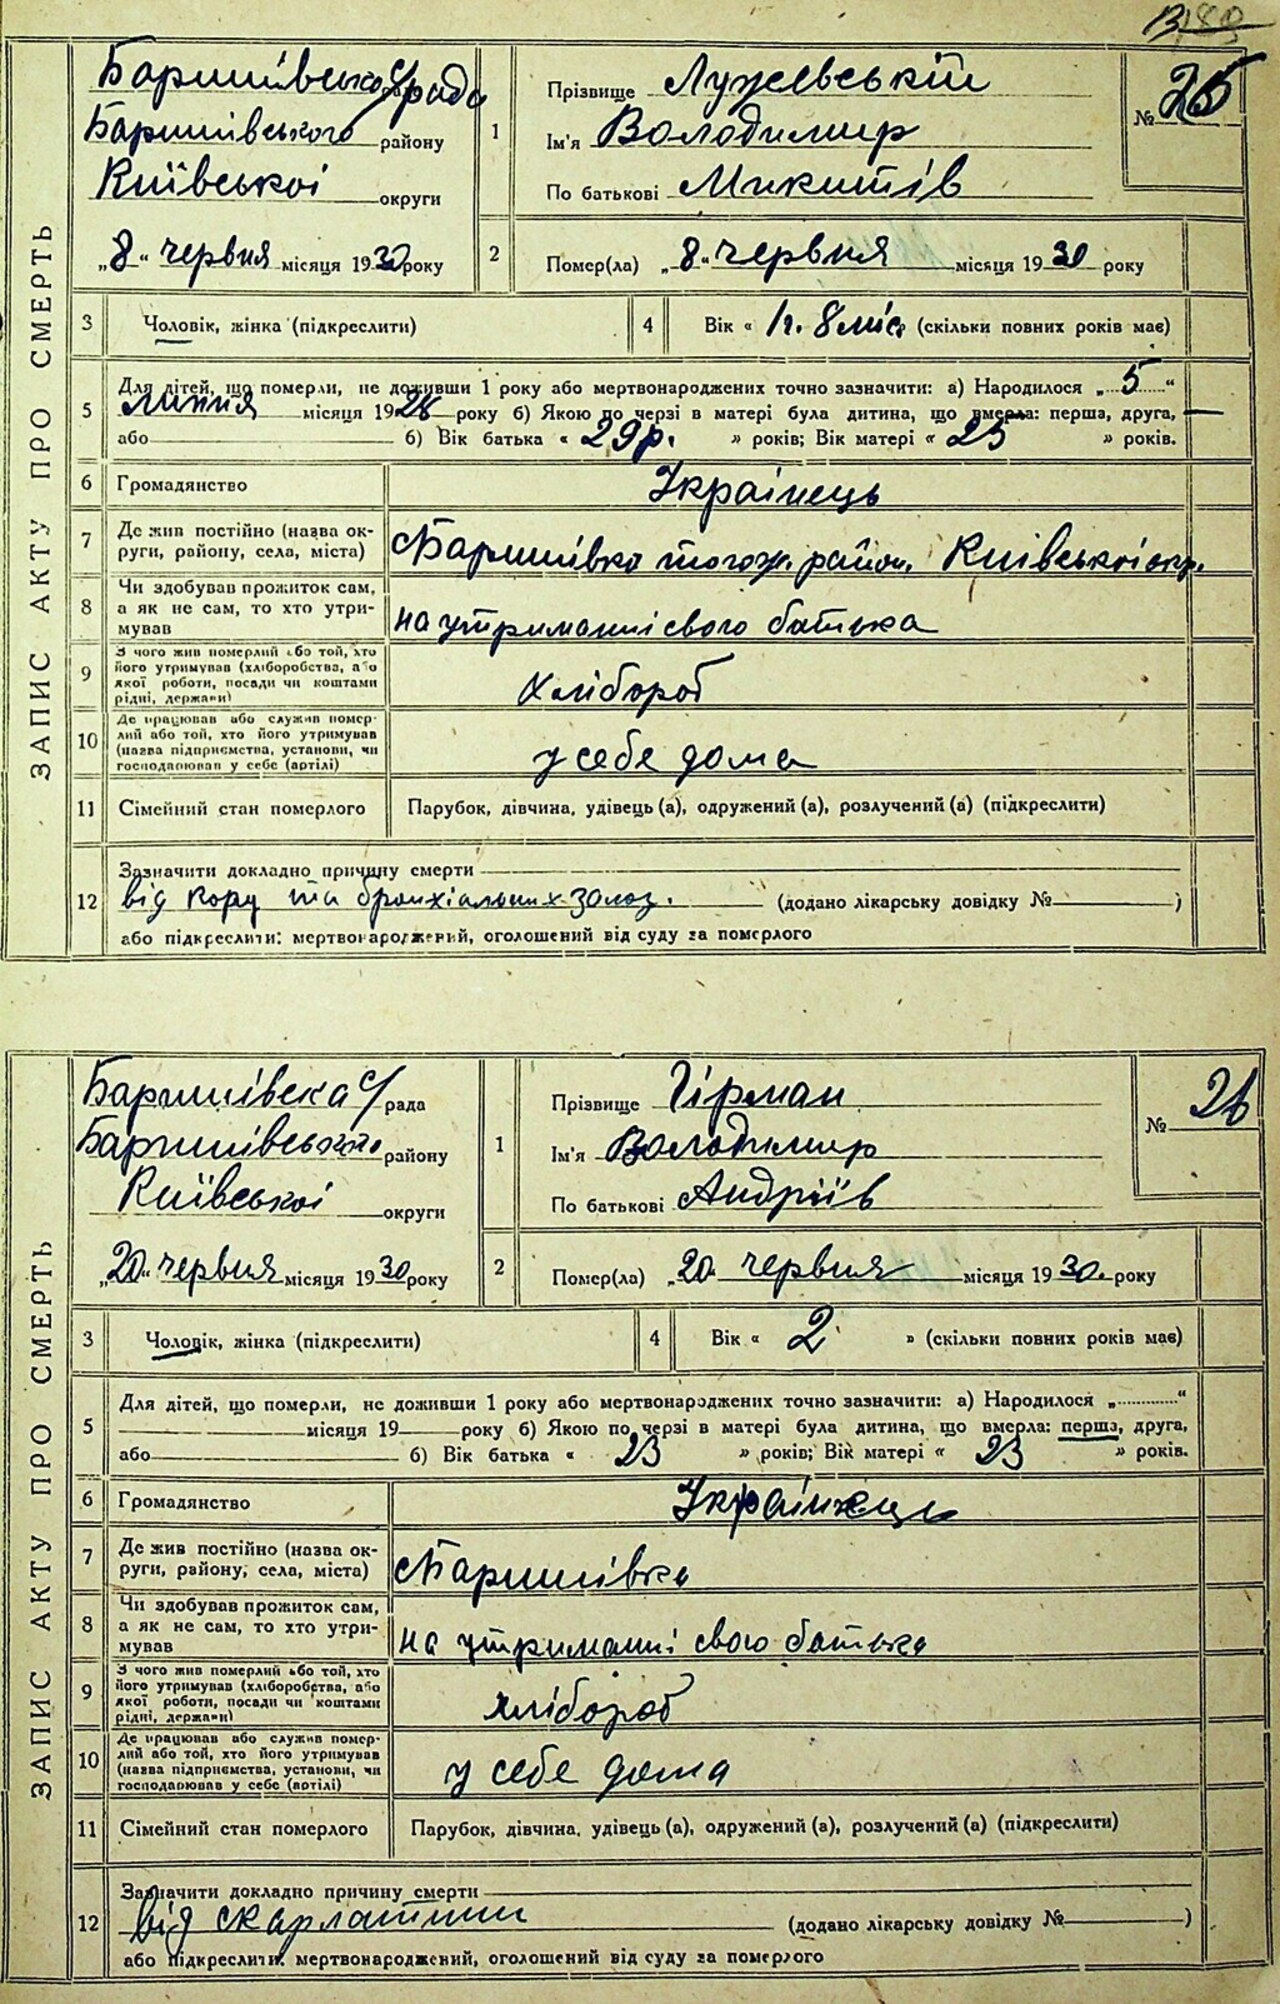 Баришівська с/рада
Баришівського району
Київської округи
„8“ червня місяця 1930 року
ЗАПИС АКТУ ПРО СМЕРТЬ
1
Прізвище Лужевський
Ім'я Володимир
По батькові Микитів
№ 25
2
Помер(ла) „8“ червня місяця 1930 року
3 Чоловік, жінка (підкреслити)
4 Вік « 1 р. 8 міс. (скільки повних років має)
5
Для дітей, що померли, не доживши 1 року або мертвонароджених точно зазначити: а) Народилося „5“
липня місяця 1928 року б) Якою по черзі в матері була дитина, що вмерла: перша, друга,
або б) Вік батька « 29 р. » років; Вік матері « 25 » років.
6 Громадянство Українець
7
Де жив постійно (назва ок-
руги, району, села, міста)
Баришівка тогож. район. Київської окр.
8
Чи здобував прожиток сам,
а як не сам, то хто утри-
мував
на утриманні свого батька
9
З чого жив померлий або той, хто
його утримував (хліборобства, або
якої роботи, посади чи коштами
рідні, держави)
хлібороб
10
Де працював або служив помер-
лий або той, хто його утримував
(назва підприємства, установи, чи
господарював у себе (артілі)
у себе дома
11 Сімейний стан померлого Парубок, дівчина, удівець (а), одружений (а), розлучений (а) (підкреслити)
12
Зазначити докладно причину смерти
від кору та бронхіальних залоз. (додано лікарську довідку № )
або підкреслити: мертвонароджений, оголошений від суду за померлого
Баришівська с/рада
Баришівського району
Київської округи
„20“ червня місяця 1930 року
ЗАПИС АКТУ ПРО СМЕРТЬ
1
Прізвище Гірман
Ім'я Володимир
По батькові Андріїв
№ 26
2
Помер(ла) „20 червня місяця 1930. року
3 Чоловік, жінка (підкреслити)
4 Вік « 2 » (скільки повних років має)
5
Для дітей, що померли, не доживши 1 року або мертвонароджених точно зазначити: а) Народилося „ “
місяця 19 року б) Якою по черзі в матері була дитина, що вмерла: перша, друга,
або б) Вік батька « 23 » років; Вік матері « 23 » років.
6 Громадянство Українець
7
Де жив постійно (назва ок-
руги, району, села, міста)
Баришівка
8
Чи здобував прожиток сам,
а як не сам, то хто утри-
мував
на утриманні свого батька
9
З чого жив померлий або той, хто
його утримував (хліборобства, або
якої роботи, посади чи коштами
рідні, держави)
хлібороб
10
Де працював або служив помер-
лий або той, хто його утримував
(назва підприємства, установи, чи
господарював у себе (артілі)
у себе дома
11 Сімейний стан померлого Парубок, дівчина, удівець (а), одружений (а), розлучений (а) (підкреслити)
12
Зазначити докладно причину смерти
від скарлатини (додано лікарську довідку № )
або підкреслити: мертвонароджений, оголошений від суду за померлого